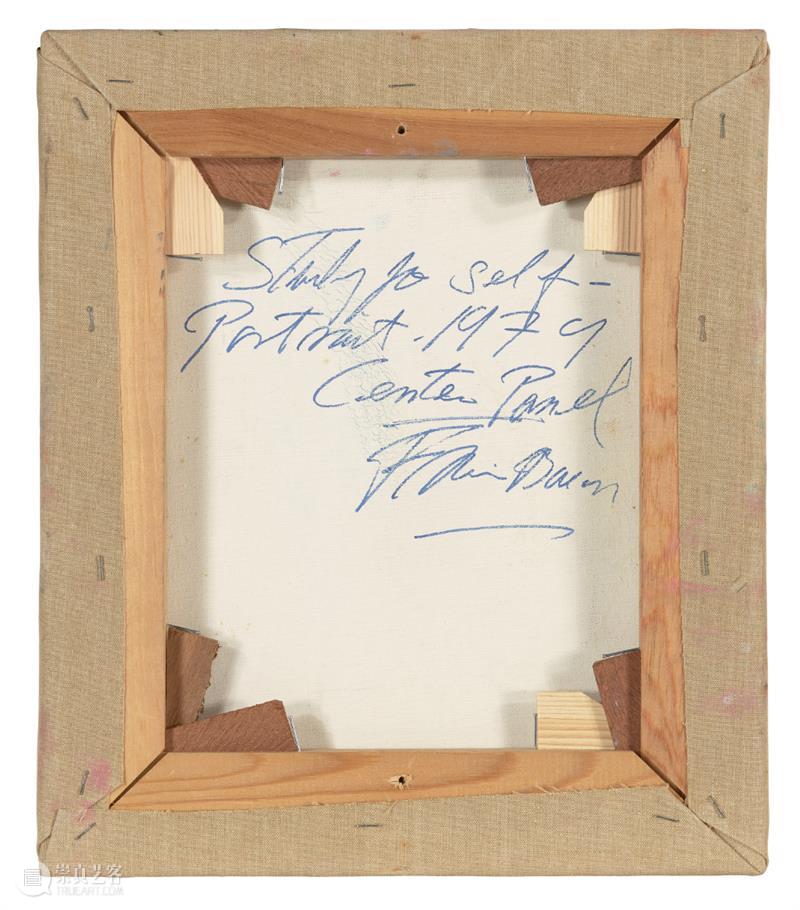 Study for Self-
Portrait. 1979
Center Panel
Francis Bacon
崇真艺客
TRUEART.COM